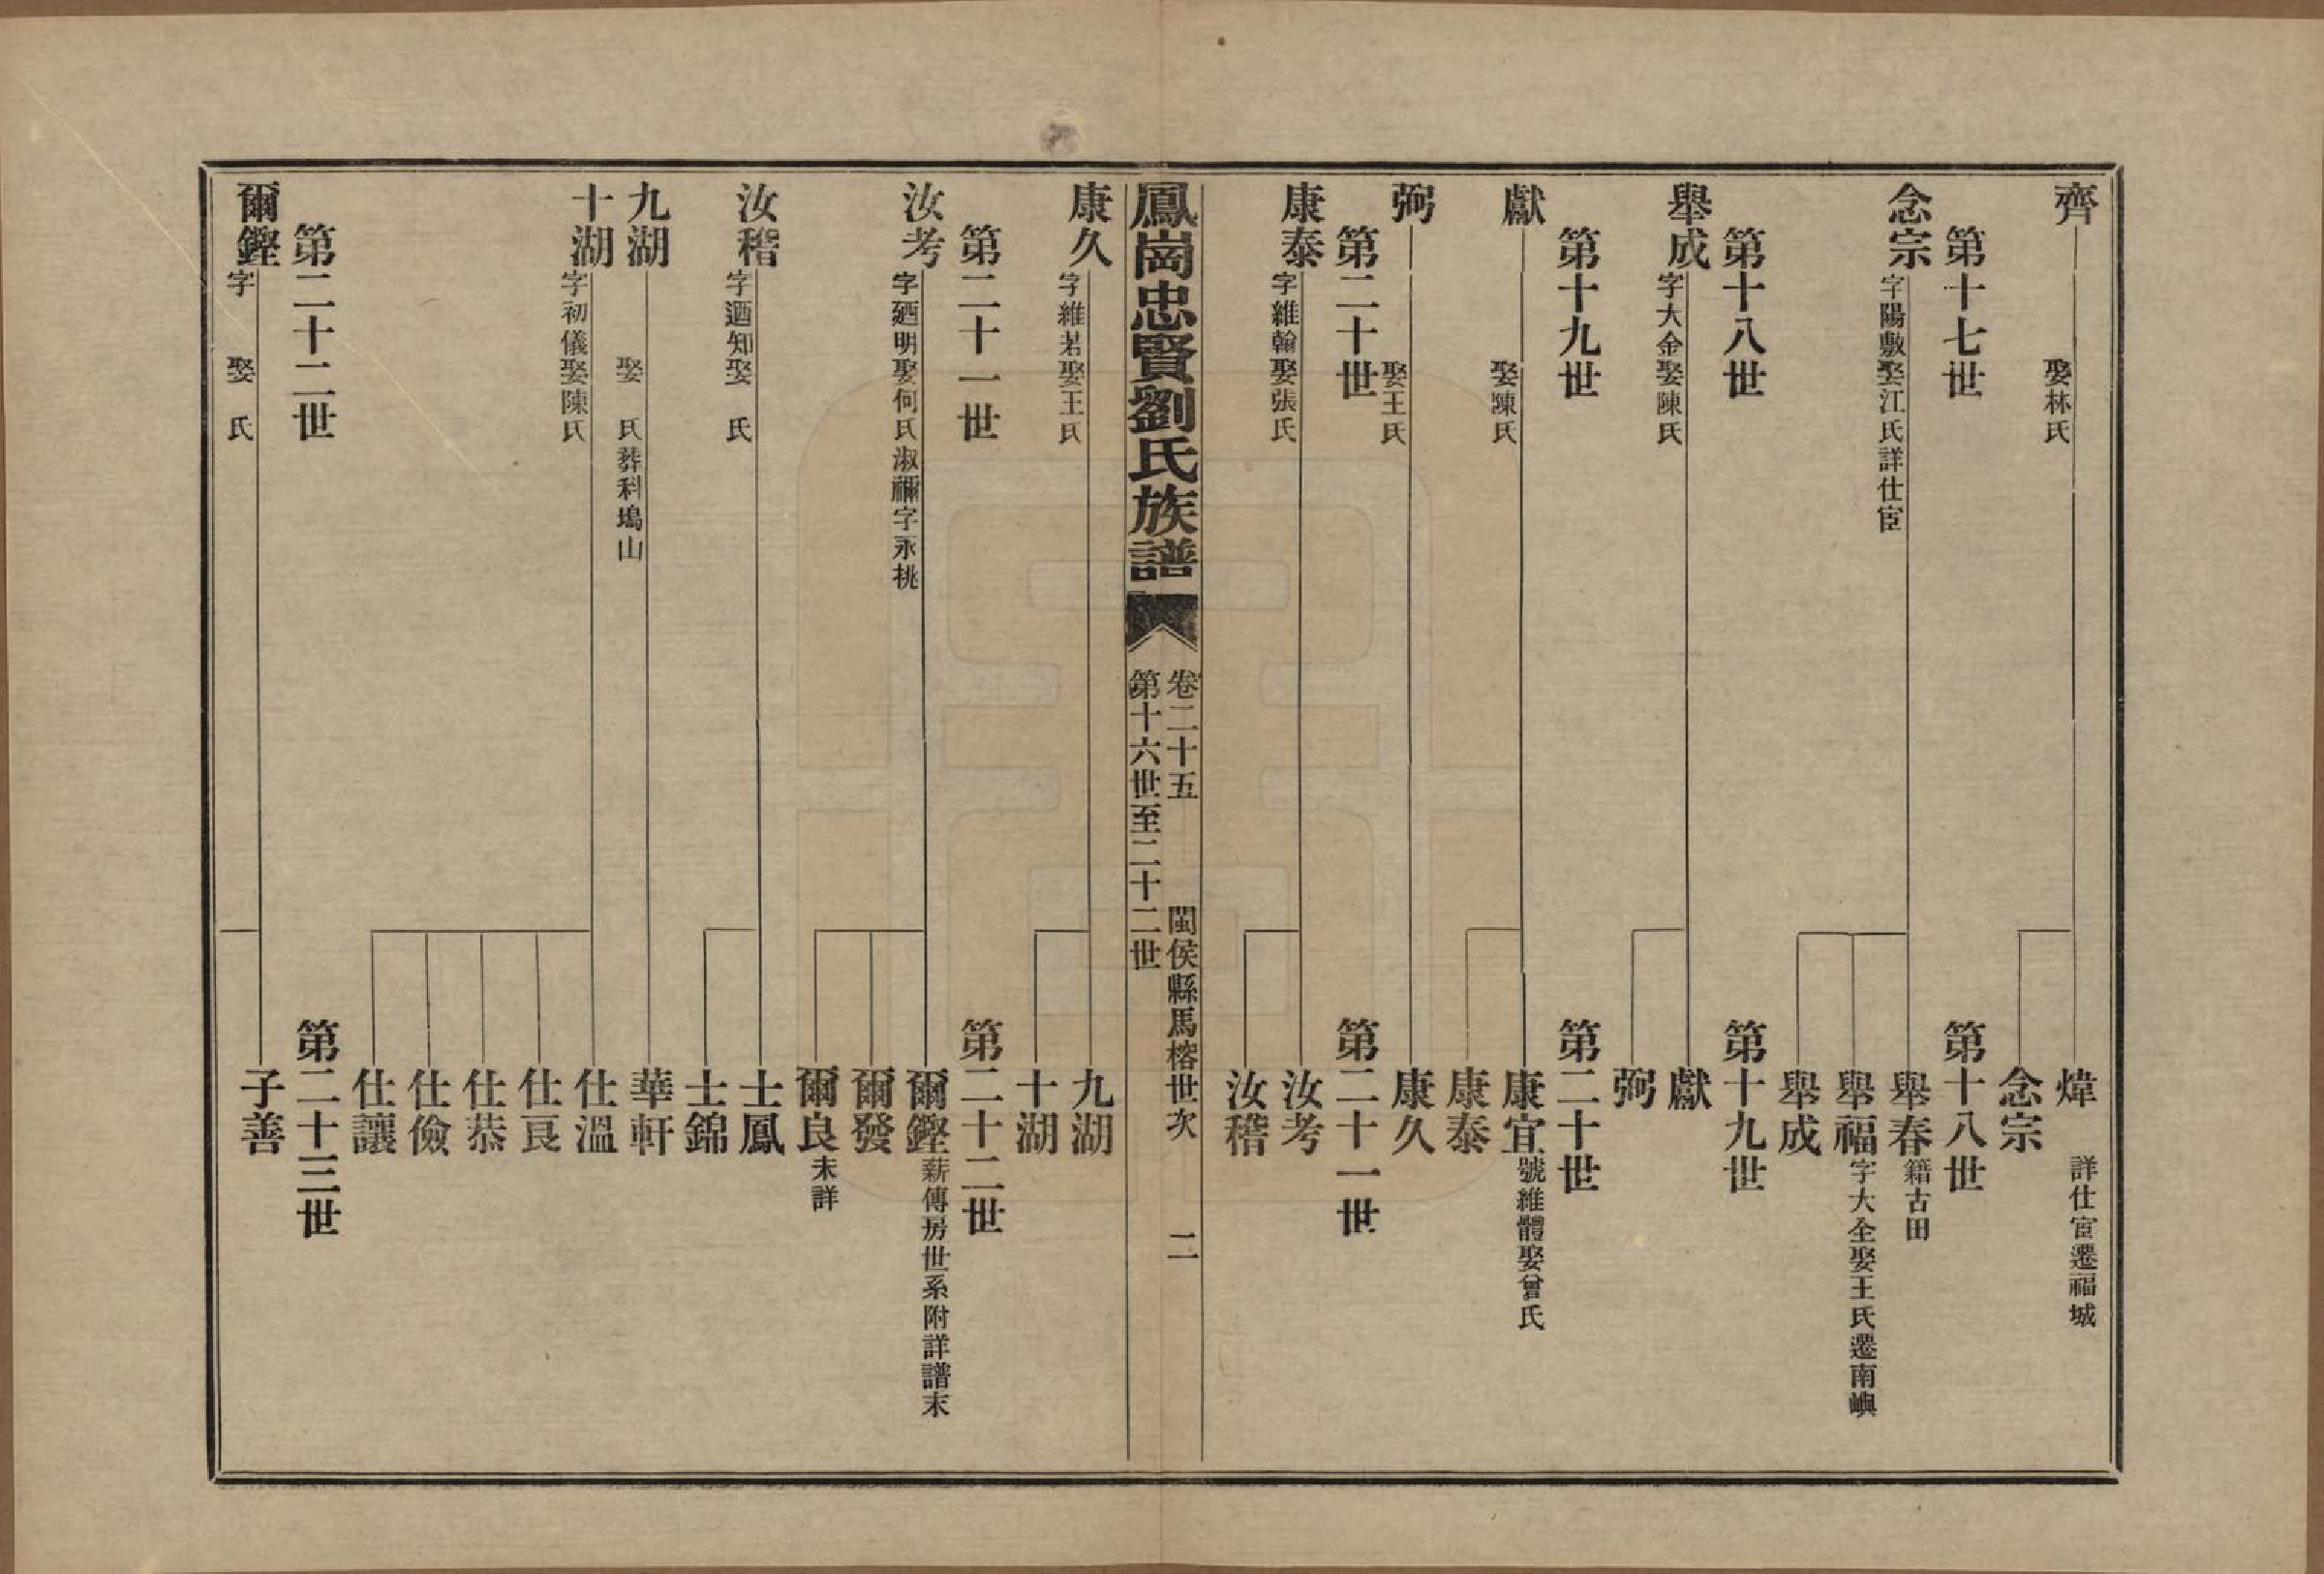 齊
娶林氏
煒
詳仕宦遷福城
念宗
第十七世
第十八世
念宗
字陽敷娶江氏詳仕宦
舉春
籍古田
舉福
字大全娶王氏遷南嶼
舉成
第十八世
第十九世
舉成
字大金娶陳氏
獻
弼
第十九世
第二十世
獻
娶陳氏
康宜
號維體娶曾氏
康泰
弼
娶王氏
康久
第二十世
第二十一世
康泰
字維翰娶張氏
汝考
汝稽
鳳崗忠賢劉氏族譜
卷二十五 閩侯縣馬榕世次 二
第十六世至二十二世
康久
字維若娶王氏
九湖
十湖
第二十一世
第二十二世
汝考
字廼明娶何氏淑禰字永桃
爾鏗
薪傳房世系附詳譜末
爾發
爾良
未詳
汝稽
字迺知娶 氏
士鳳
士錦
九湖
娶 氏葬科塢山
華軒
十湖
字初儀娶陳氏
仕溫
仕良
仕恭
仕儉
仕讓
第二十二世
第二十三世
爾鏗
字 娶 氏
子善